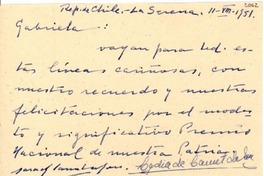 2062
Rep. de Chile.- La Serena, 11-VIII-1951.
Gabriela:
vayan para Ud. es-
tas líneas cariñosas, con
nuestro recuerdo y nuestras
felicitaciones por el modes-
to y significativo Premio
Nacional de nuestra Patria,